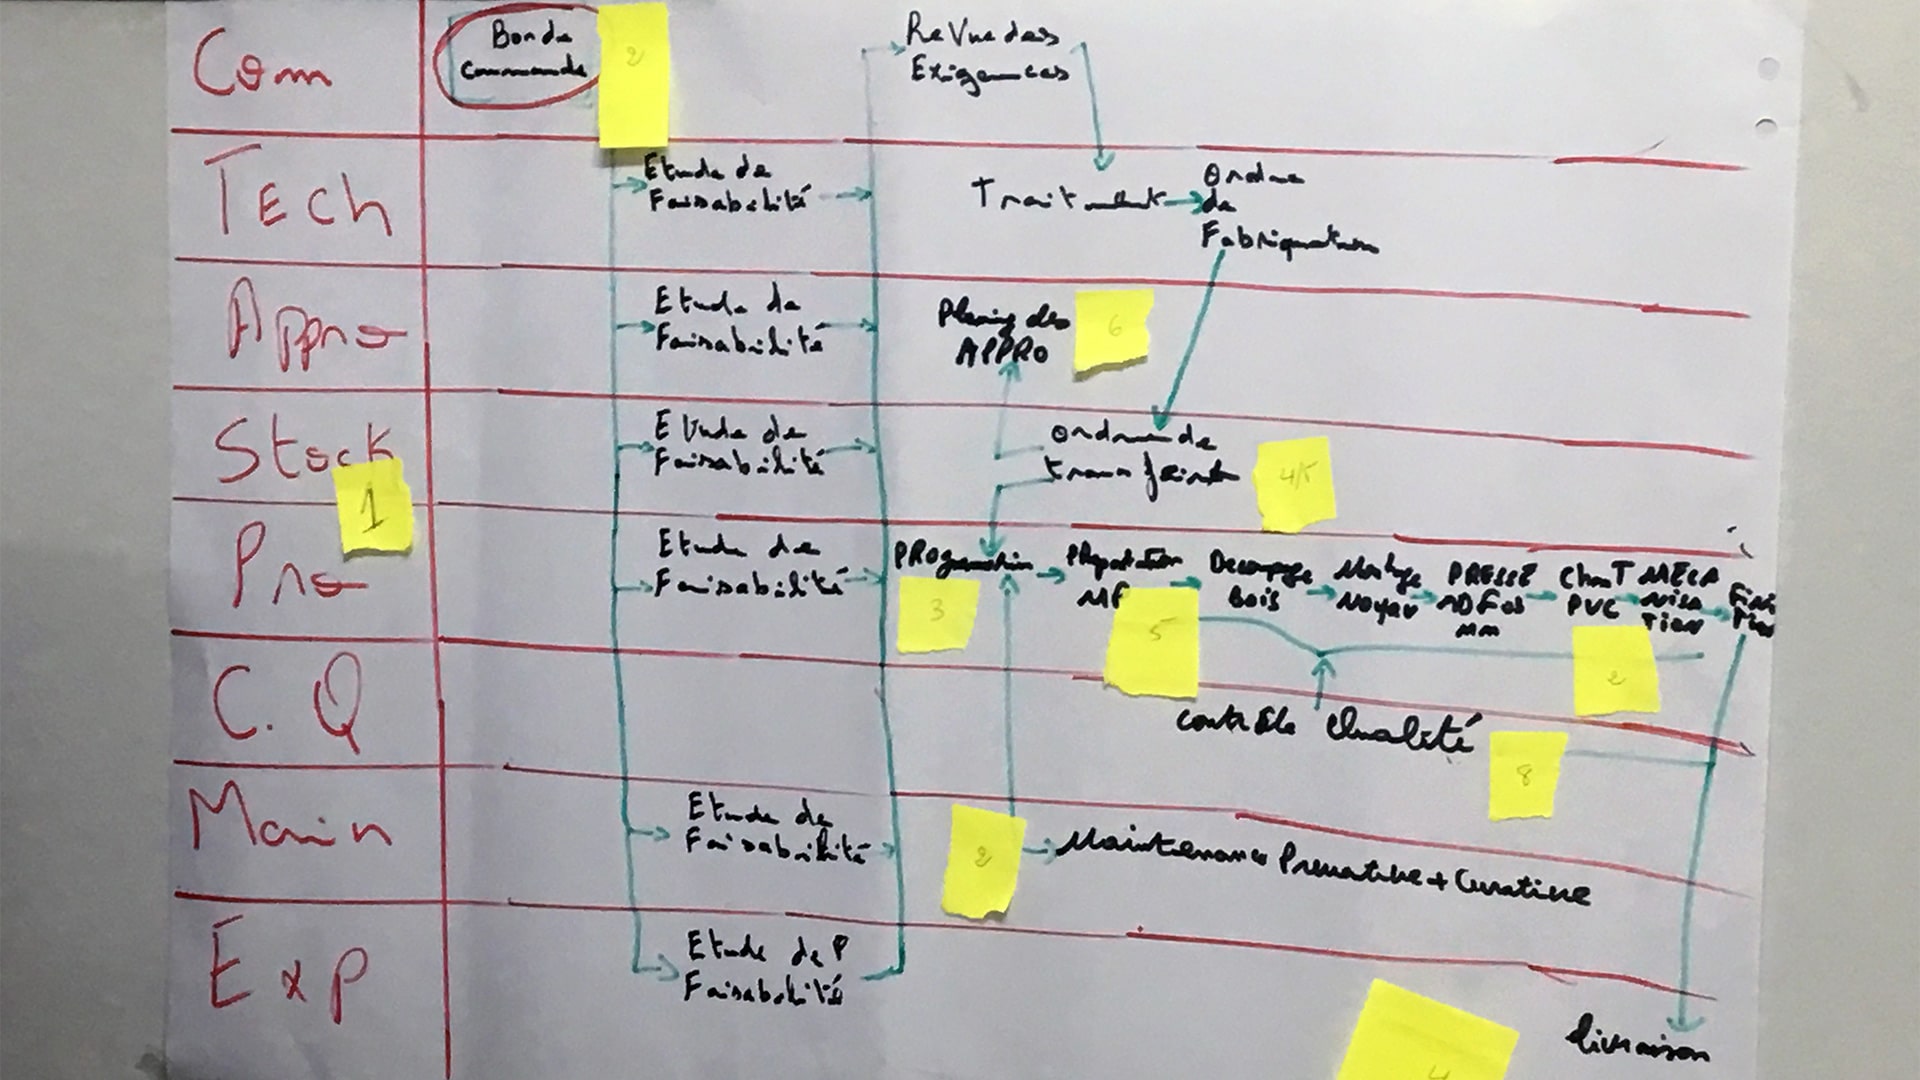 Com
Bon de
Commande
2
Revue des
Exigences
Tech
Etude de
Faisabilité
Traitement
Ordre
de
Fabrication
Appro
Etude de
Faisabilité
Planing des
APPRO
6
Stock
1
Etude de
Faisabilité
Ordre de
transfert
4/5
Pro
Etude de
Faisabilité
PROgrammation
3
Préparation
MP
5
Decoupage
Bois
Montage
Noyau
PRESSE
MDF 03
mm
Chant
PVC
MECA
NISA
TION
2
Fini
tion
C.Q
Contrôle Qualité
8
Main
Etude de
Faisabilité
2
Maintenance Préventive + Curative
Exp
Etude de
Faisabilité
livraison
4